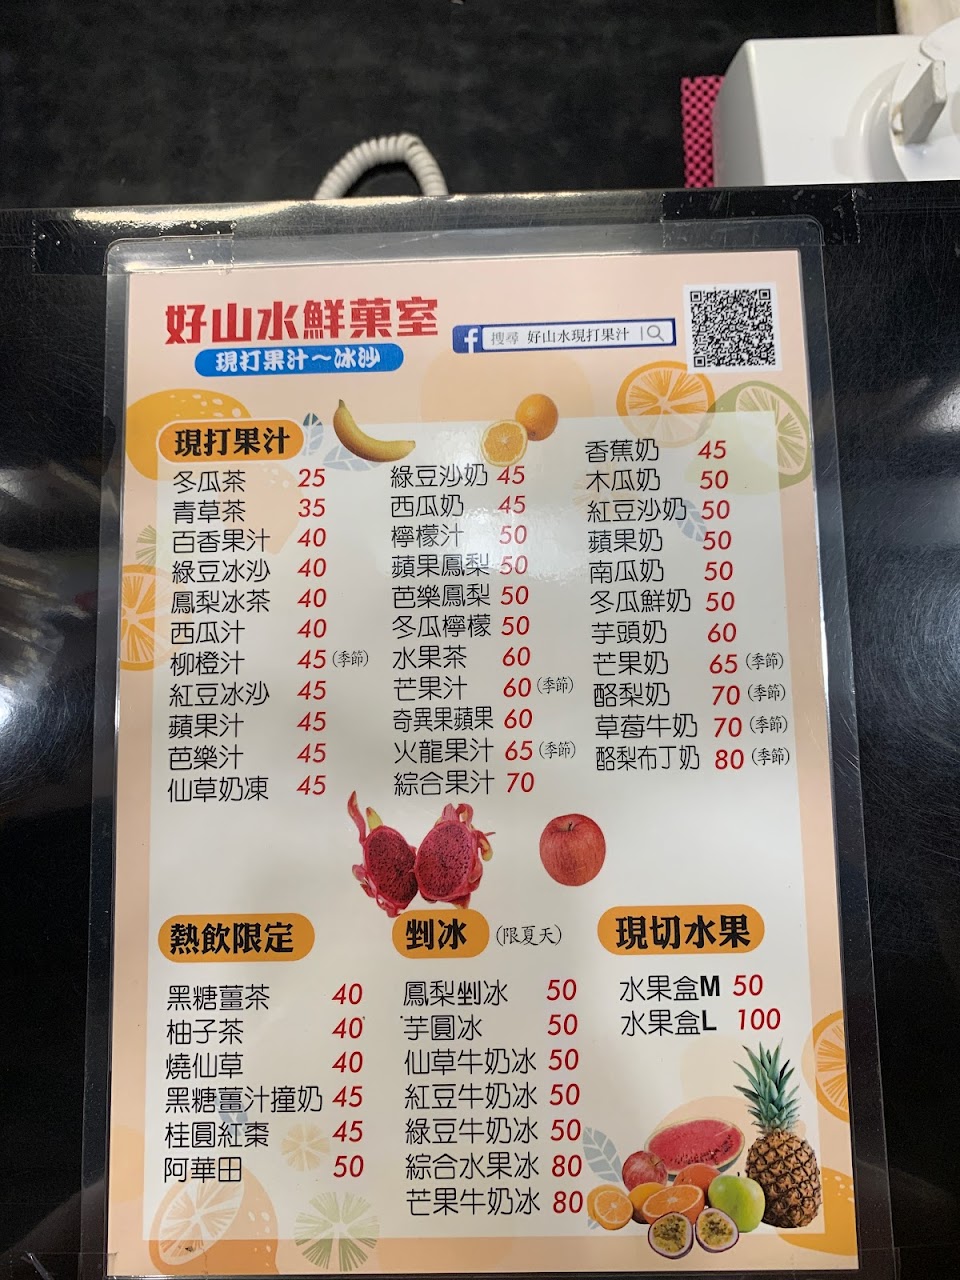 好山水鮮菓室
現打果汁～冰沙
搜尋 好山水現打果汁
現打果汁
冬瓜茶 25
青草茶 35
百香果汁 40
綠豆冰沙 40
鳳梨冰茶 40
西瓜汁 40
柳橙汁 45 (季節)
紅豆冰沙 45
蘋果汁 45
芭樂汁 45
仙草奶凍 45
綠豆沙奶 45
西瓜奶 45
檸檬汁 50
蘋果鳳梨 50
芭樂鳳梨 50
冬瓜檸檬 50
水果茶 60
芒果汁 60 (季節)
奇異果蘋果 60
火龍果汁 65 (季節)
綜合果汁 70
香蕉奶 45
木瓜奶 50
紅豆沙奶 50
蘋果奶 50
南瓜奶 50
冬瓜鮮奶 50
芋頭奶 60
芒果奶 65 (季節)
酪梨奶 70 (季節)
草莓牛奶 70 (季節)
酪梨布丁奶 80 (季節)
熱飲限定
黑糖薑茶 40
柚子茶 40
燒仙草 40
黑糖薑汁撞奶 45
桂圓紅棗 45
阿華田 50
剉冰 (限夏天)
鳳梨剉冰 50
芋圓冰 50
仙草牛奶冰 50
紅豆牛奶冰 50
綠豆牛奶冰 50
綜合水果冰 80
芒果牛奶冰 80
現切水果
水果盒M 50
水果盒L 100